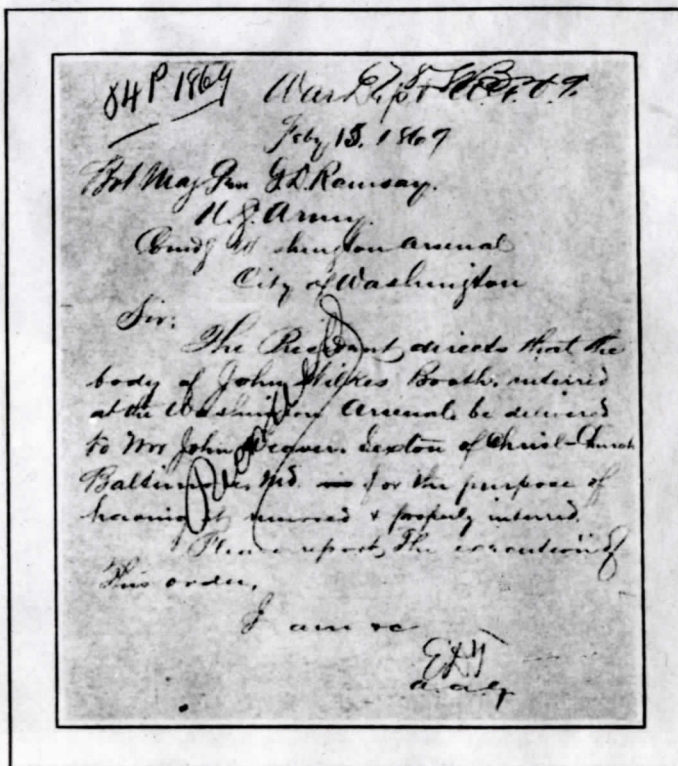 84 P 1869
War Dept
Feby 15. 1869
Bvt Maj Gen G.D. Ramsay.
U.S. Army.
Comdg Washington Arsenal
City of Washington
Sir:
The President directs that the
body of John Wilkes Booth, interred
at the Washington Arsenal, be delivered
to Mr John Weaver Sexton of Christ Church
Baltimore, Md. for the purpose of
having it removed & properly interred.
Please report the execution of
this order.
I am &c
E.D.T.
a.a.g.